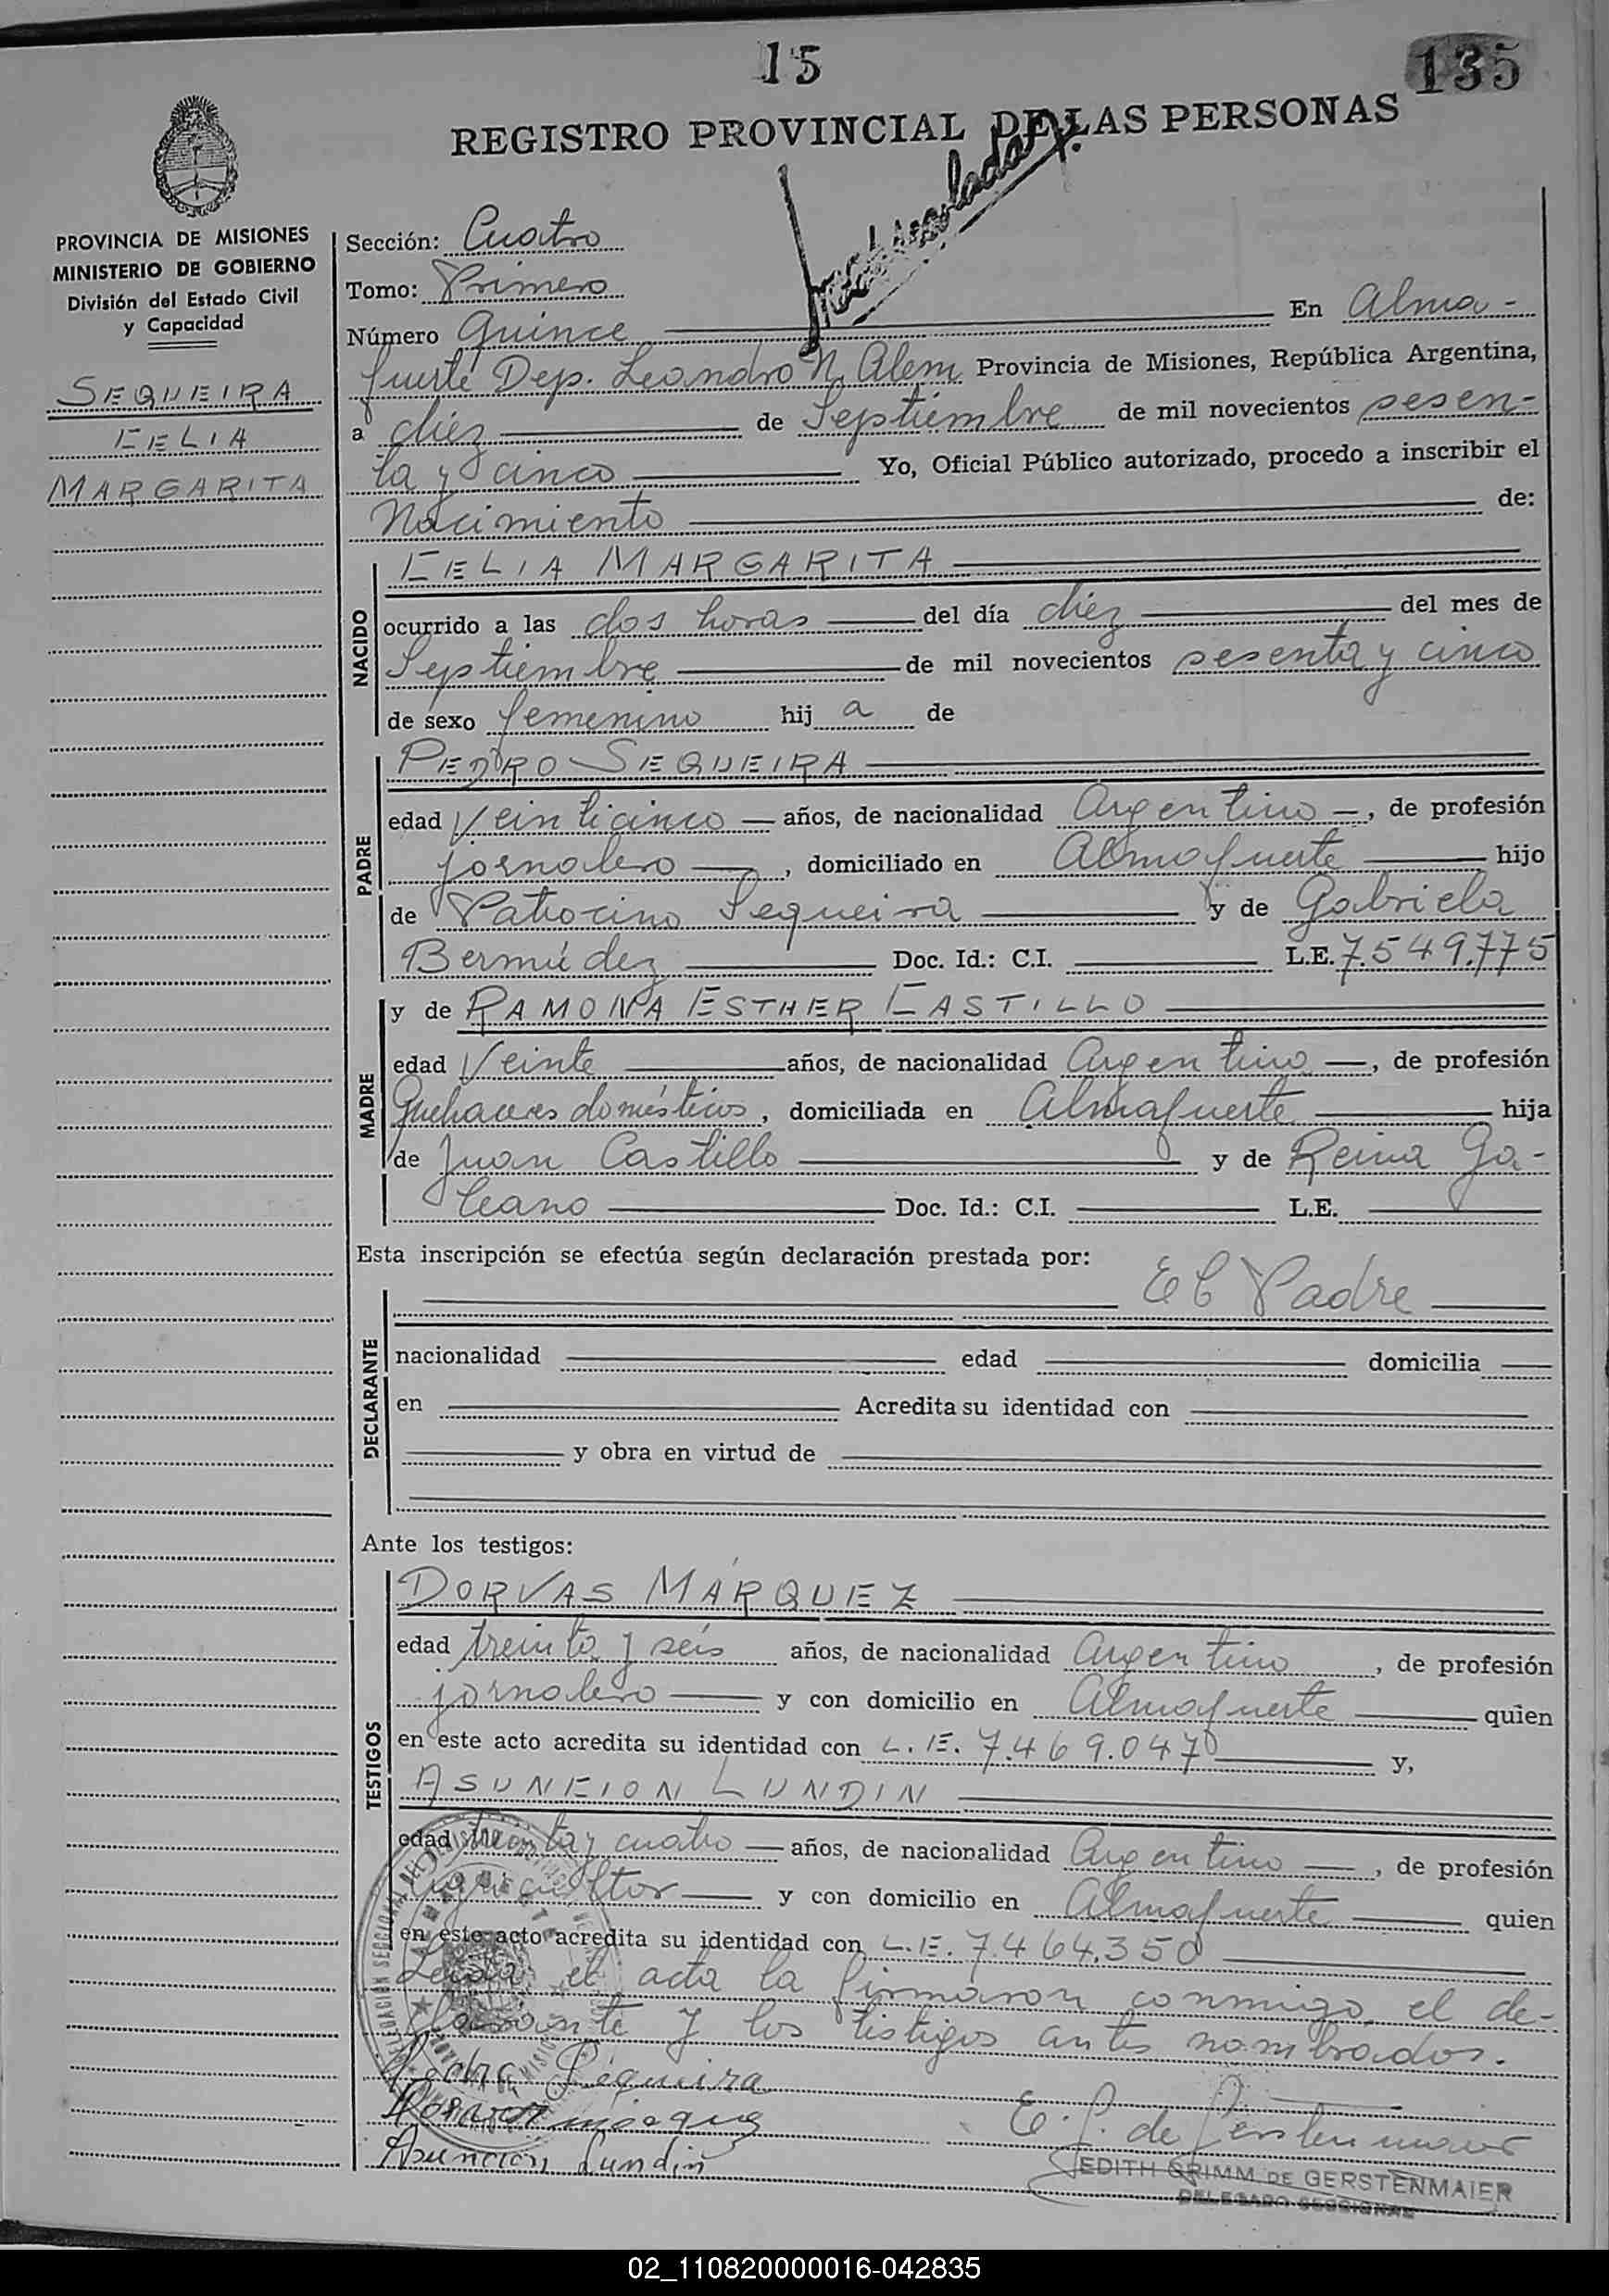 15
135
REGISTRO PROVINCIAL DE LAS PERSONAS
PROVINCIA DE MISIONES
MINISTERIO DE GOBIERNO
División del Estado Civil
y Capacidad
SEQUEIRA
CELIA
MARGARITA
Sección: Cuatro
Tomo: Primero
Número Quince En Alma-
fuerte Dep. Leandro N. Alem Provincia de Misiones, República Argentina,
a diez de Septiembre de mil novecientos sesen-
ta y cinco Yo, Oficial Público autorizado, procedo a inscribir el
Nacimiento de:
NACIDO
CELIA MARGARITA
ocurrido a las dos horas del día diez del mes de
Septiembre de mil novecientos sesenta y cinco
de sexo femenino hij a de
PADRE
PEDRO SEQUEIRA
edad Veinticinco años, de nacionalidad Argentino, de profesión
jornalero, domiciliado en Almafuerte hijo
de Patrocino Sequeira y de Gabriela
Bermúdez Doc. Id.: C.I. L.E. 7.549.775
MADRE
y de RAMONA ESTHER CASTILLO
edad Veinte años, de nacionalidad Argentina, de profesión
Quehaceres domésticos, domiciliada en Almafuerte hija
de Juan Castillo y de Reina Ga-
leano Doc. Id.: C.I. L.E.
Esta inscripción se efectúa según declaración prestada por:
El Padre
DECLARANTE
nacionalidad edad domicilia
en Acredita su identidad con
y obra en virtud de
Ante los testigos:
TESTIGOS
DORVAS MÁRQUEZ
edad treinta y seis años, de nacionalidad Argentino, de profesión
jornalero y con domicilio en Almafuerte quien
en este acto acredita su identidad con L.E. 7.469.047 y,
ASUNCION LUNDIN
edad treinta y cuatro años, de nacionalidad Argentino, de profesión
agricultor y con domicilio en Almafuerte quien
en este acto acredita su identidad con L.E. 7.464.350
Leída el acta la firmaron conmigo, el de-
clarante y los testigos antes nombrados.
Pedro Sequeira
Asuncion Lundin
E. G. de Gerstenmaier
EDITH GRIMM DE GERSTENMAIER
DELEGADO SECCIONAL
02_110820000016-042835